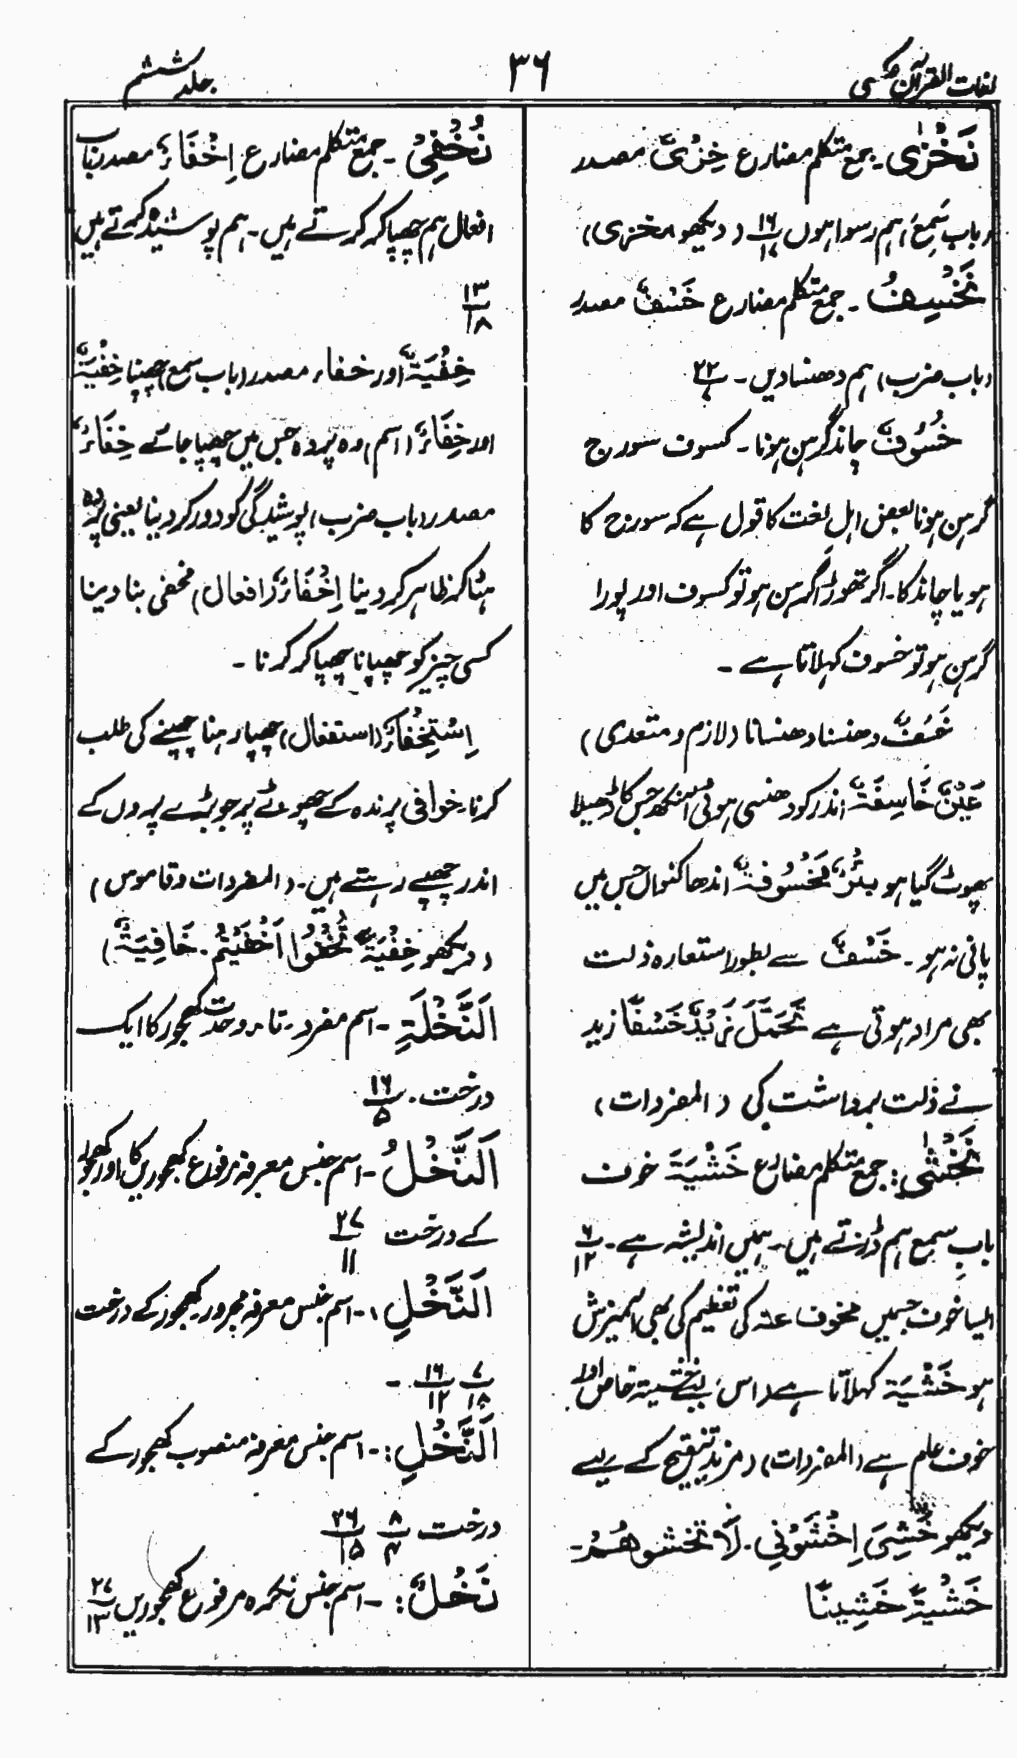 لغات القرآن عکسی
۳۶
جلد ششم
نَخْزٰی ۔ جمع متکلم مضارع خِزْیٌ مصدر
(باب سَمِعَ) ہم رسوا ہوں ۱۶/۱۶ (دیکھو مخزی)
نَخْسِفُ ۔ جمع متکلم مضارع خَسْفٌ مصدر
(باب ضرب) ہم دھنسا دیں ۔ ۲۲/۹
خُسُوفٌ چاند گرہن ہونا ۔ کسوف سورج
گرہن ہونا بعض اہل لغت کا قول ہے کہ سورج کا
ہو یا چاند کا ۔ اگر تھوڑا گرہن ہو تو کسوف اور پورا
گرہن ہو تو خسوف کہلاتا ہے ۔
خَسْفٌ دھنسنا دھنسانا (لازم و متعدی)
عَیْنٌ خَاسِفَةٌ اندر کو دھنسی ہوئی آنکھ جس کا ڈھیلا
پھوٹ گیا ہو بِئْرٌ مَخْسُوفَةٌ اندھا کنواں جس میں
پانی نہ ہو ۔ خَسْفٌ سے بطور استعارہ ذلت
بھی مراد ہوتی ہے تَحَمَّلَ زَیْدٌ خَسْفًا زید
نے ذلت برداشت کی (المفردات)
نَخْشٰی: جمع متکلم مضارع خَشْیَةَ خوف
بابِ سمع ہم ڈرتے ہیں ۔ ہمیں اندیشہ ہے ۔ ۶/۱۲
ایسا خوف جسمیں مخوف عنہ کی تعظیم کی بھی آمیزش
ہو خَشْیَة کہلاتا ہے (اس لیے خشیتہ خاص اور
خوف علم ہے (المفردات) (مزید تنقیح کے لیے
دیکھو خَشِیَ اِخْشَوْنِی ۔ لَا تخشوھُمْ ۔
خَشْیَةً خَشِینَا
نُخْفِیْ ۔ جمع متکلم مضارع اِخْفَاءٌ مصدر باب
افعال ہم چھپا کر کرتے ہیں ۔ ہم پوشیدہ کرتے ہیں
۱۳/۱۸
خِفْیَةٌ اور خفاء مصدر (باب سمع) چھپنا خِفْیَةٌ
اور خِفَاءٌ (اسم) وہ پردہ جس میں چھپا جائے خِفَاءٌ
مصدر (باب ضرب) پوشیدگی کو دور کر دینا یعنی پردہ
ہٹا کر ظاہر کر دینا اِخْفَاءٌ (افعال) مخفی بنا دینا
کسی چیز کو چھپانا چھپا کر کرنا ۔
اِسْتِخْفَاءٌ (استفعال) چھپا رہنا چھپنے کی طلب
کرنا ۔ خوافی پرندہ کے چھوٹے پر جو بڑے پروں کے
اندر چھپے رہتے ہیں ۔ (المفردات و قاموس)
(دیکھو خِفْیَةٌ تُخْفُوْا اَخْفَیْتُمْ ۔ خَافِیَةٌ)
اَلنَّخْلَةِ ۔ اسم مفرد ۔ تاء وحدت کھجور کا ایک
درخت ۔ ۱۶/۵
اَلنَّخْلُ ۔ اسم جنس معرفہ مرفوع کھجوریں کا اور کھجور
کے درخت ۲۷/۱۱
اَلنَّخْلِ، ۔ اسم جنس معرفہ مجرور ۔ کھجور کے درخت
۷/۱۸ ۱۶/۱۲ ۔
اَلنَّخْلِ: ۔ اسم جنس معرفہ منصوب کھجور کے
درخت ۸/۴ ۲۶/۱۵
نَخْلٌ: ۔ اسم جنس نکرہ مرفوع کھجوریں ۲۷/۱۳